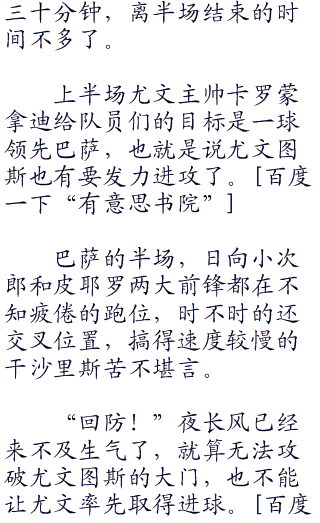 三十分钟，离半场结束的时
间不多了。
上半场尤文主帅卡罗蒙
拿迪给队员们的目标是一球
领先巴萨，也就是说尤文图
斯也有要发力进攻了。[百度
一下“有意思书院”]
巴萨的半场，日向小次
郎和皮耶罗两大前锋都在不
知疲倦的跑位，时不时的还
交叉位置，搞得速度较慢的
干沙里斯苦不堪言。
“回防！”夜长风已经
来不及生气了，就算无法攻
破尤文图斯的大门，也不能
让尤文率先取得进球。[百度